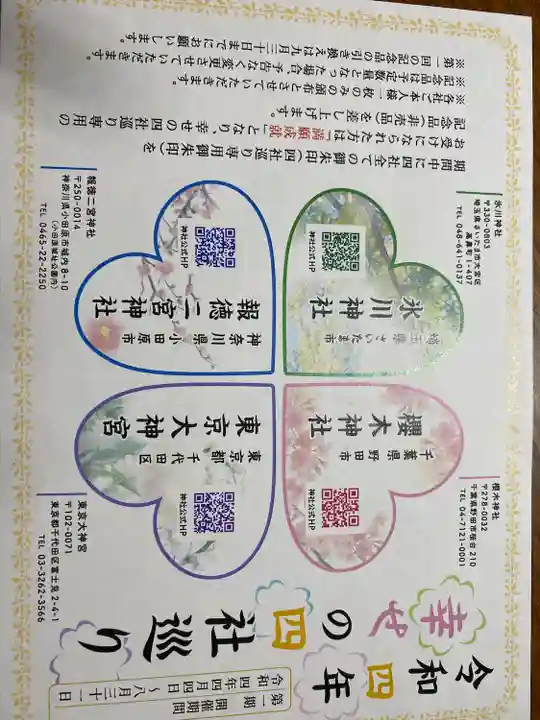 令和四年
幸せの四社巡り
第一期 開催期間
令和四年四月四日～八月三十一日
氷川神社
〒330-0803
埼玉県さいたま市大宮区
高鼻町1-407
TEL 048-641-0137
神社公式HP
氷川神社
埼玉県さいたま市
櫻木神社
〒278-0032
千葉県野田市桜台210
TEL 04-7121-0001
神社公式HP
櫻木神社
千葉県野田市
報徳二宮神社
〒250-0014
神奈川県小田原市城内8-10
(小田原城址公園内)
TEL 0465-22-2250
神社公式HP
報徳二宮神社
神奈川県小田原市
東京大神宮
〒102-0071
東京都千代田区富士見2-4-1
TEL 03-3262-3566
神社公式HP
東京大神宮
東京都千代田区
期間中に四社全ての御朱印(四社巡り専用御朱印)を
お受けになられた方は「満願成就」となり、幸せの四社巡り専用の
記念品(非売品)を差し上げます。
※各社ご本人様一枚のみの頒布とさせていただきます。
※記念品は予定数量となった場合、予告なく変更させていただきます。
※第一回の記念品の引き換えは九月三十日までにお願いします。